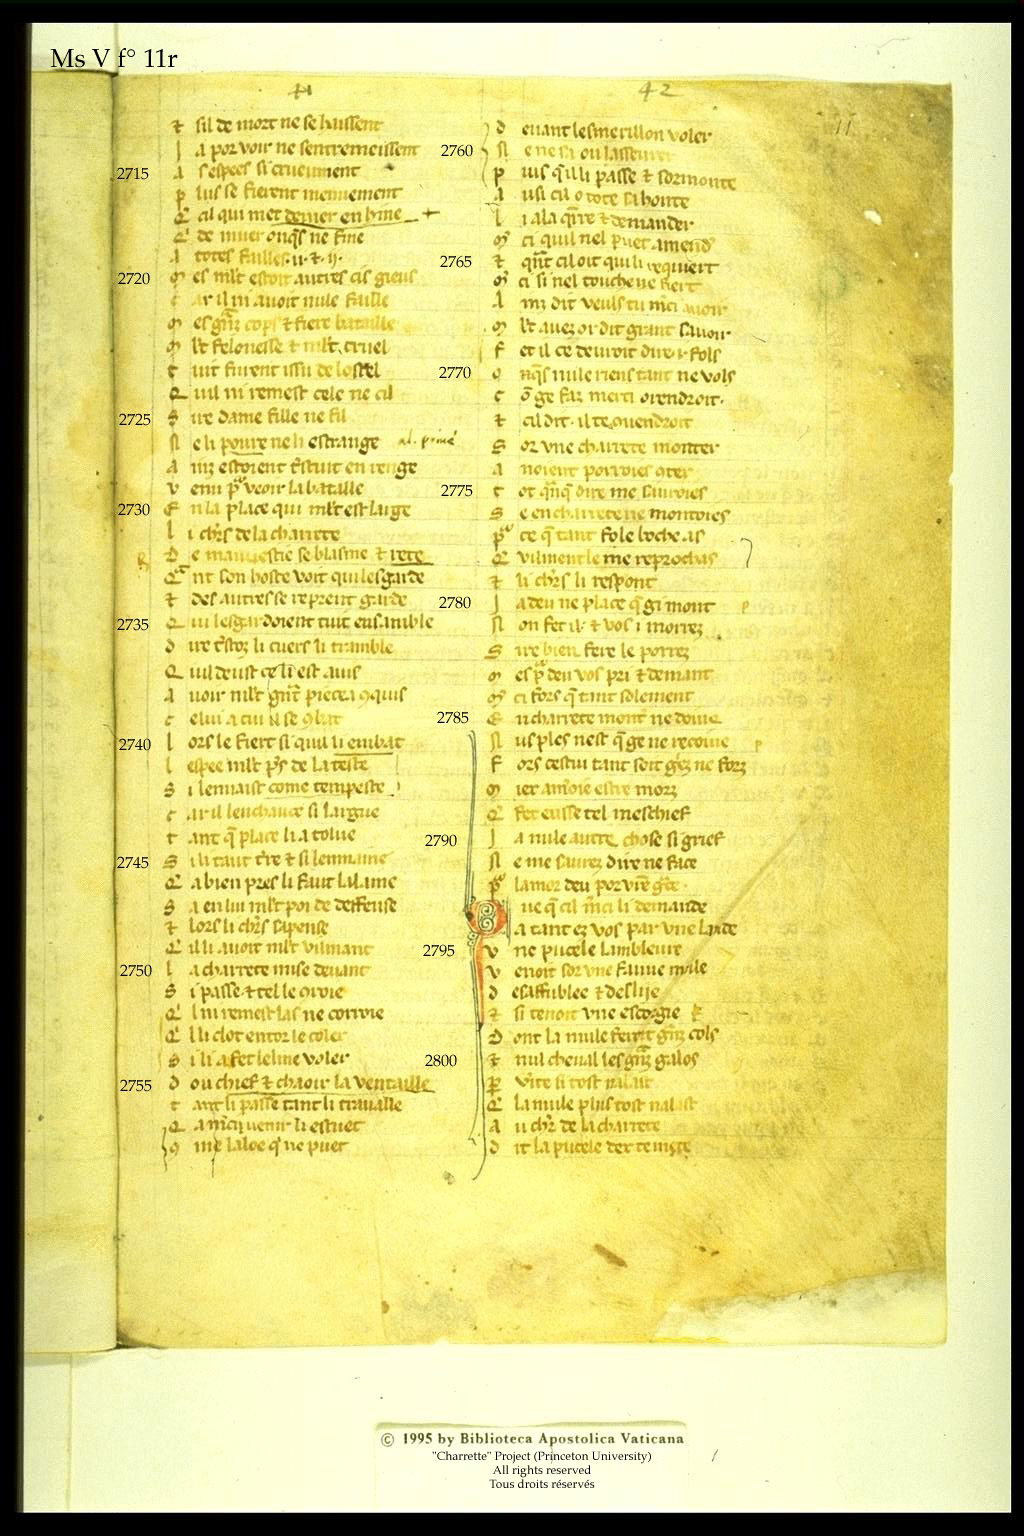 Ms V f° 11r
41
42
11
⁊ sil de mort ne se haissent
J a por voir ne sentremeissent
2715 A sespees si cruieument
p lus se fierent menuement
Q' cil qui met denier en hme
Q' de muer onqs ne fine
A totes failles .ii. ⁊ .ij.
2720 m es mlt estoit autres cis gieus
c ar il ni auoit nule faille
m es cops ⁊ fiere bataille
m lt felonesse ⁊ mlt cruel
t uit furent issu de lostel
Q uil ni remest cele ne cil
2725 S ire dame fille ne fil
N e li poure ne li estrange
A estoient tstuit en renge
v enu p veoir la bataille
2730 E n la place qui mlt est large
l i chrs de la charrete
D e mauuestie se blasme ⁊ rete
Q nt son hoste voit qui lesgarde
⁊ des autres se reprent garde
2735 Q ui lesgardoient tuit ensamble
d ire li cuers li tramble
Q uil deust ce li est auis
A uoir mlt grnt pieca 9quis
c elui a cui il se 9bat
2740 l ors le fiert si quil li embat
l espee mlt ps de la teste
s i lennaist come tempeste
c ar il lenchauce si largue
t ant q place li a tolue
2745 S i li taut tre ⁊ si lenmaine
Q' a bien pres li faut lalaine
S a en lui mlt poi de deffense
⁊ lors li chrs sapense
Q' il li auoit mlt vilmant
2750 l a charrete mise deuant
S i passe ⁊ tel le 9roie
Q' l ni remest las ne corroie
Q' l li clot entor le coler
S i li a fet lelme voler
2755 d ou chief ⁊ chaoir la ventaille
t ant li passe tant li trauaille
Q a mci uenir li estuet
9 me laloe q' ne puet
d euant lesmerillon voler
2760 N e ne sa ou lasseurer
p uis q'il li passe ⁊ sormonte
A usi cil o tote sa honte
l i ala qrre ⁊ demander
m ci quil nel puet amend
2765 ⁊ qnt cil oit quil i requiert
m ci si nel touche ne fiert
A dit veuls tu mci auoir
m lt auez or dit grant sauoir
F et il ce deuroit dire .i. fols
2770 o nqs nule riens tant ne vols
c ō ge faz merci orendroit.
⁊ cil dit. il te couendroit
S or vne charrete monter
A noient porroies 9ter
2775 t ot qnq dire me sauroies
S e en charrete ne montoies
p ce q tant fole boche as
Q vilment le me reprochas
⁊ li chrs li respont
2780 J a deu ne place q gi mont
N on fet il. ⁊ vos i morrez
S ire bien fere le porrez
m es p deu vos pri ⁊ demant
m ci fors q tant solement
2785 E n charrete mont' ne doiue
N us ples nest q ge ne recoiue
F ors cestui tant soit ne forz
m iex am'oie estre morz
Q' fet eusse tel meschief
2790 J a nule autre chose si grief
N e me saurez dire ne face
p lamor deu por vre gce.
Q ue q cil mci li demande
a tant ez vos par vne lande
2795 v ne pucele lambleure
v enoit sor vne fauue mule
d esaffublee ⁊ desliie
⁊ si tenoit vne escorgie
D ont la mule feroit grnz cols
2800 ⁊ nul cheual les grnz galos
p vite si tost nalast
Q' la mule plus tost nalast
A u chr de la charrete
D it la pucele
© 1995 by Biblioteca Apostolica Vaticana
"Charrette" Project (Princeton University)
All rights reserved
Tous droits réservés